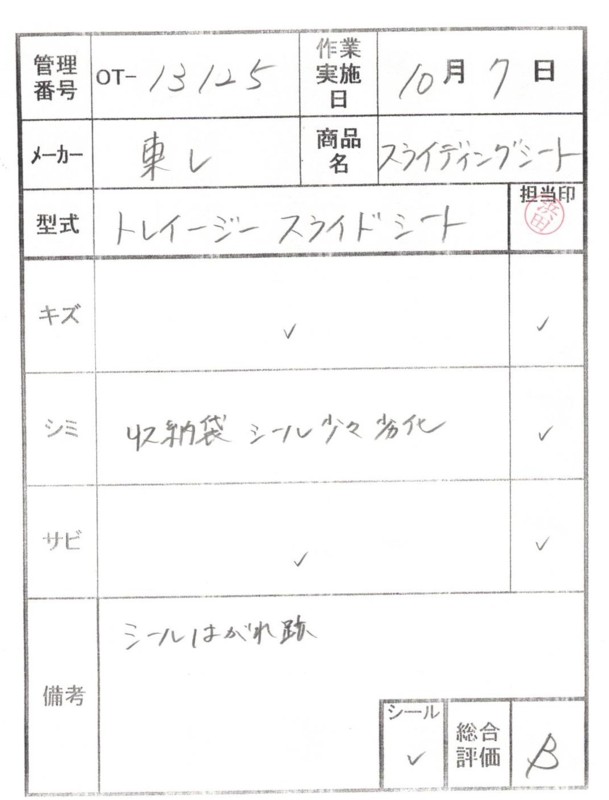 管理番号 OT-13125 作業実施日 10月7日
メーカー 東レ 商品名 スライディングシート
型式 トレイージー スライドシート 担当印 浜田
キズ ✓ ✓
シミ 収納袋 シール少々劣化 ✓
サビ ✓ ✓
備考 シールはがれ跡
シール ✓ 総合評価 B